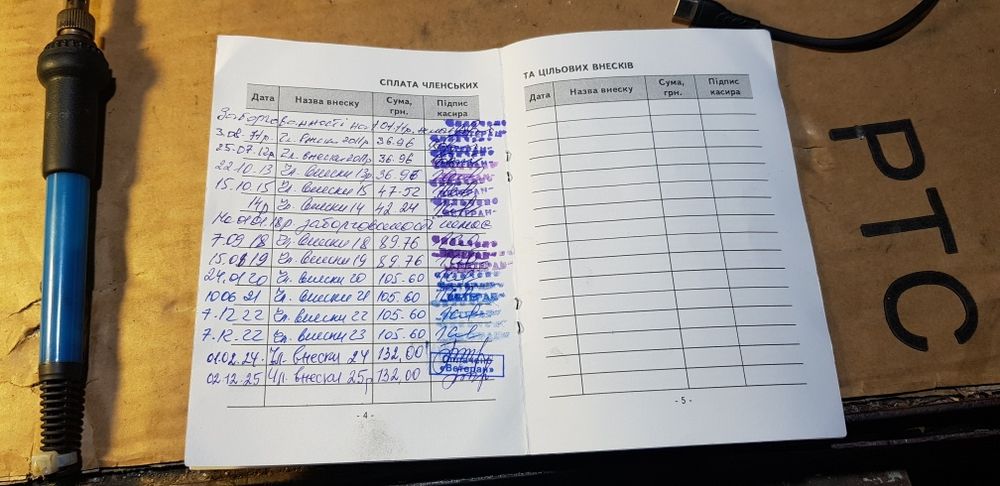 СПЛАТА ЧЛЕНСЬКИХ
Дата Назва внеску Сума, грн. Підпис касира
Заборгованності на 1.01.11р. нема
3.08.11р. Чл. внески 2011р 36.96
25.07.12р Чл. внески 2012р 36.96
22.10.13 Чл. внески 13р 36.96
15.10.15 Чл. внески 15 47-52
14р Чл. внески 14 42.24
На 01.01.18р заборгованості немає
7.09.18 Чл. внески 18 89.76
15.08.19 Чл. внески 19 89.76
24.01.20 Чл. внески 20 105-60
10.06.21 Чл. внески 21 105-60
7.12.22 Чл. внески 22 105-60
7.12.22 Чл. внески 23 105.60
01.02.24. Чл. внески 24 132,00
«Ветеран»
02.12.25 Чл. внески 25р 132,00
- 4 -
ТА ЦІЛЬОВИХ ВНЕСКІВ
Дата Назва внеску Сума, грн. Підпис касира
- 5 -
РТС